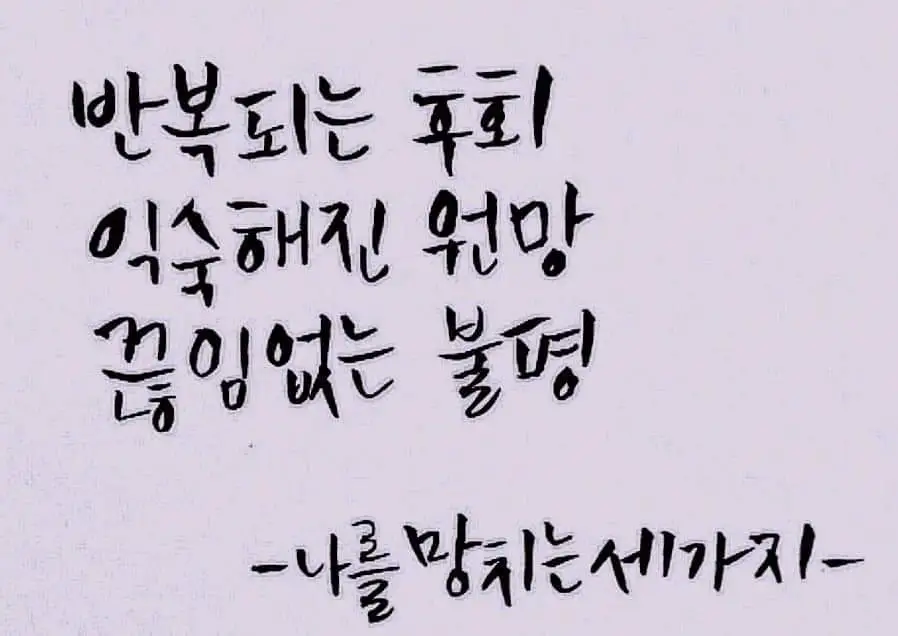 반복되는 후회
익숙해진 원망
끊임없는 불평
-나를 망치는 세가지-